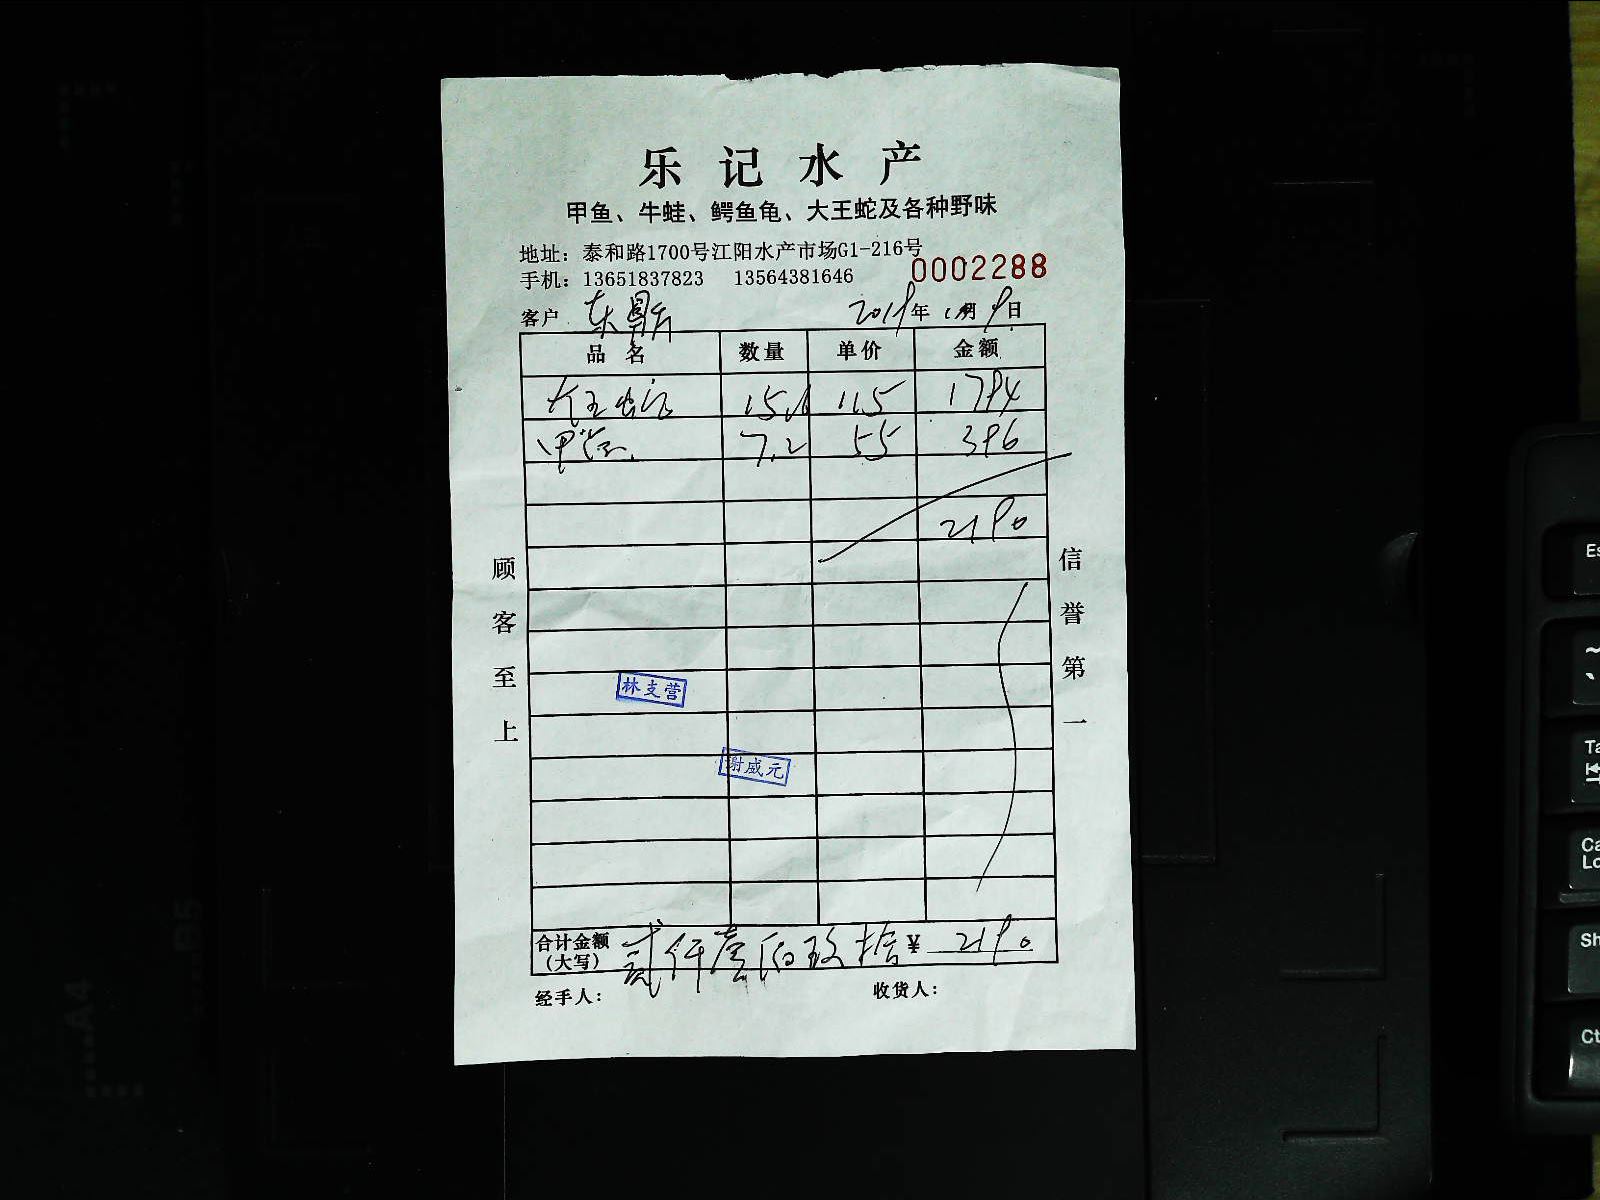 乐记水产
甲鱼、牛蛙、鳄鱼龟、大王蛇及各种野味
地址：泰和路1700号江阳水产市场G1-216号
手机：13651837823 13564381646
0002288
客户 东 年 月 9日
品名 数量 单价 金额
大王蛇 15.6 115 1794
甲鱼 7.2 55 396
2190
顾客至上
信誉第一
林支营
谢威元
合计金额 贰仟壹佰玖拾 ¥ 2190
（大写）
经手人： 收货人：
Es
~
`
Ta
Ca
Lo
Sh
Ct
A4
B5